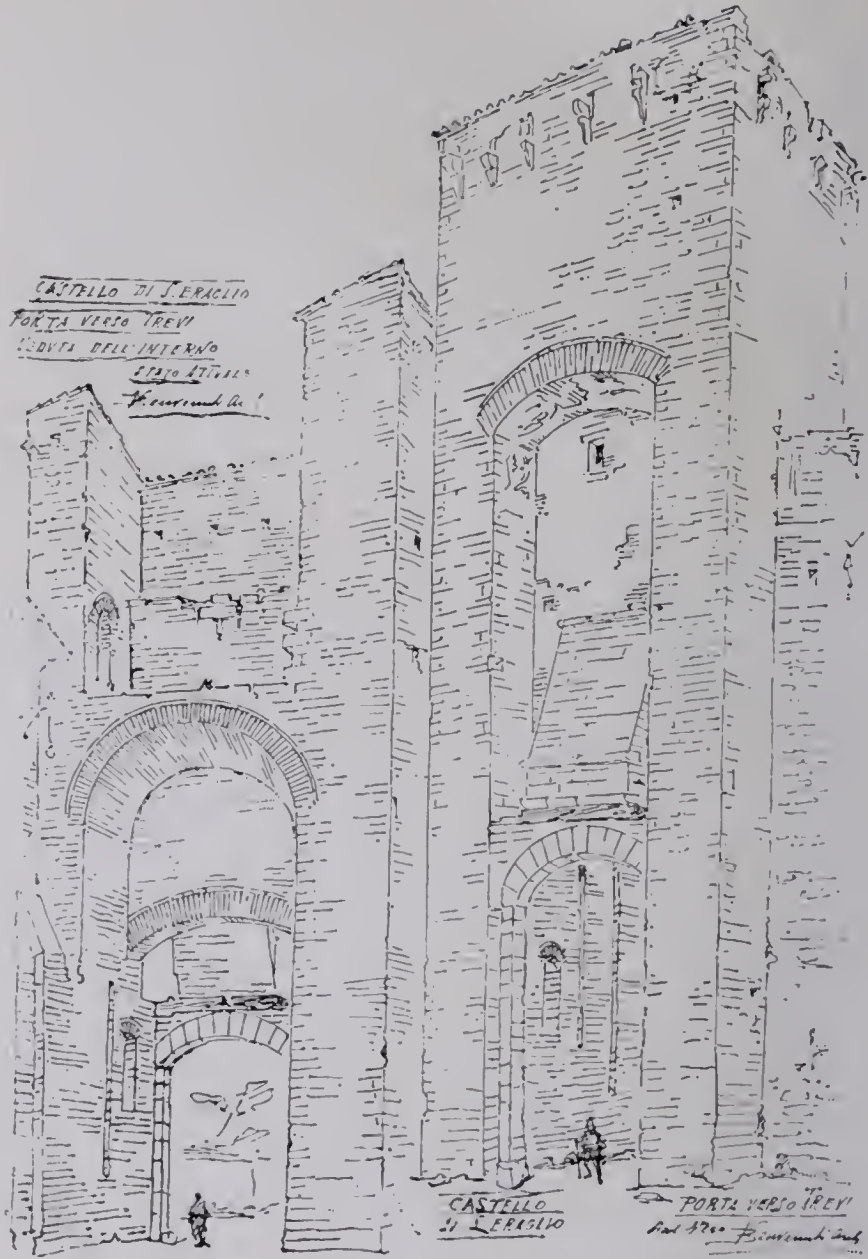 CASTELLO DI S. ERAGLIO
PORTA VERSO TREVI
VEDUTA DELL'INTERNO
STATO ATTUALE
Benvenuti
CASTELLO
di S. ERAGLIO
PORTA VERSO TREVI
Benvenuti